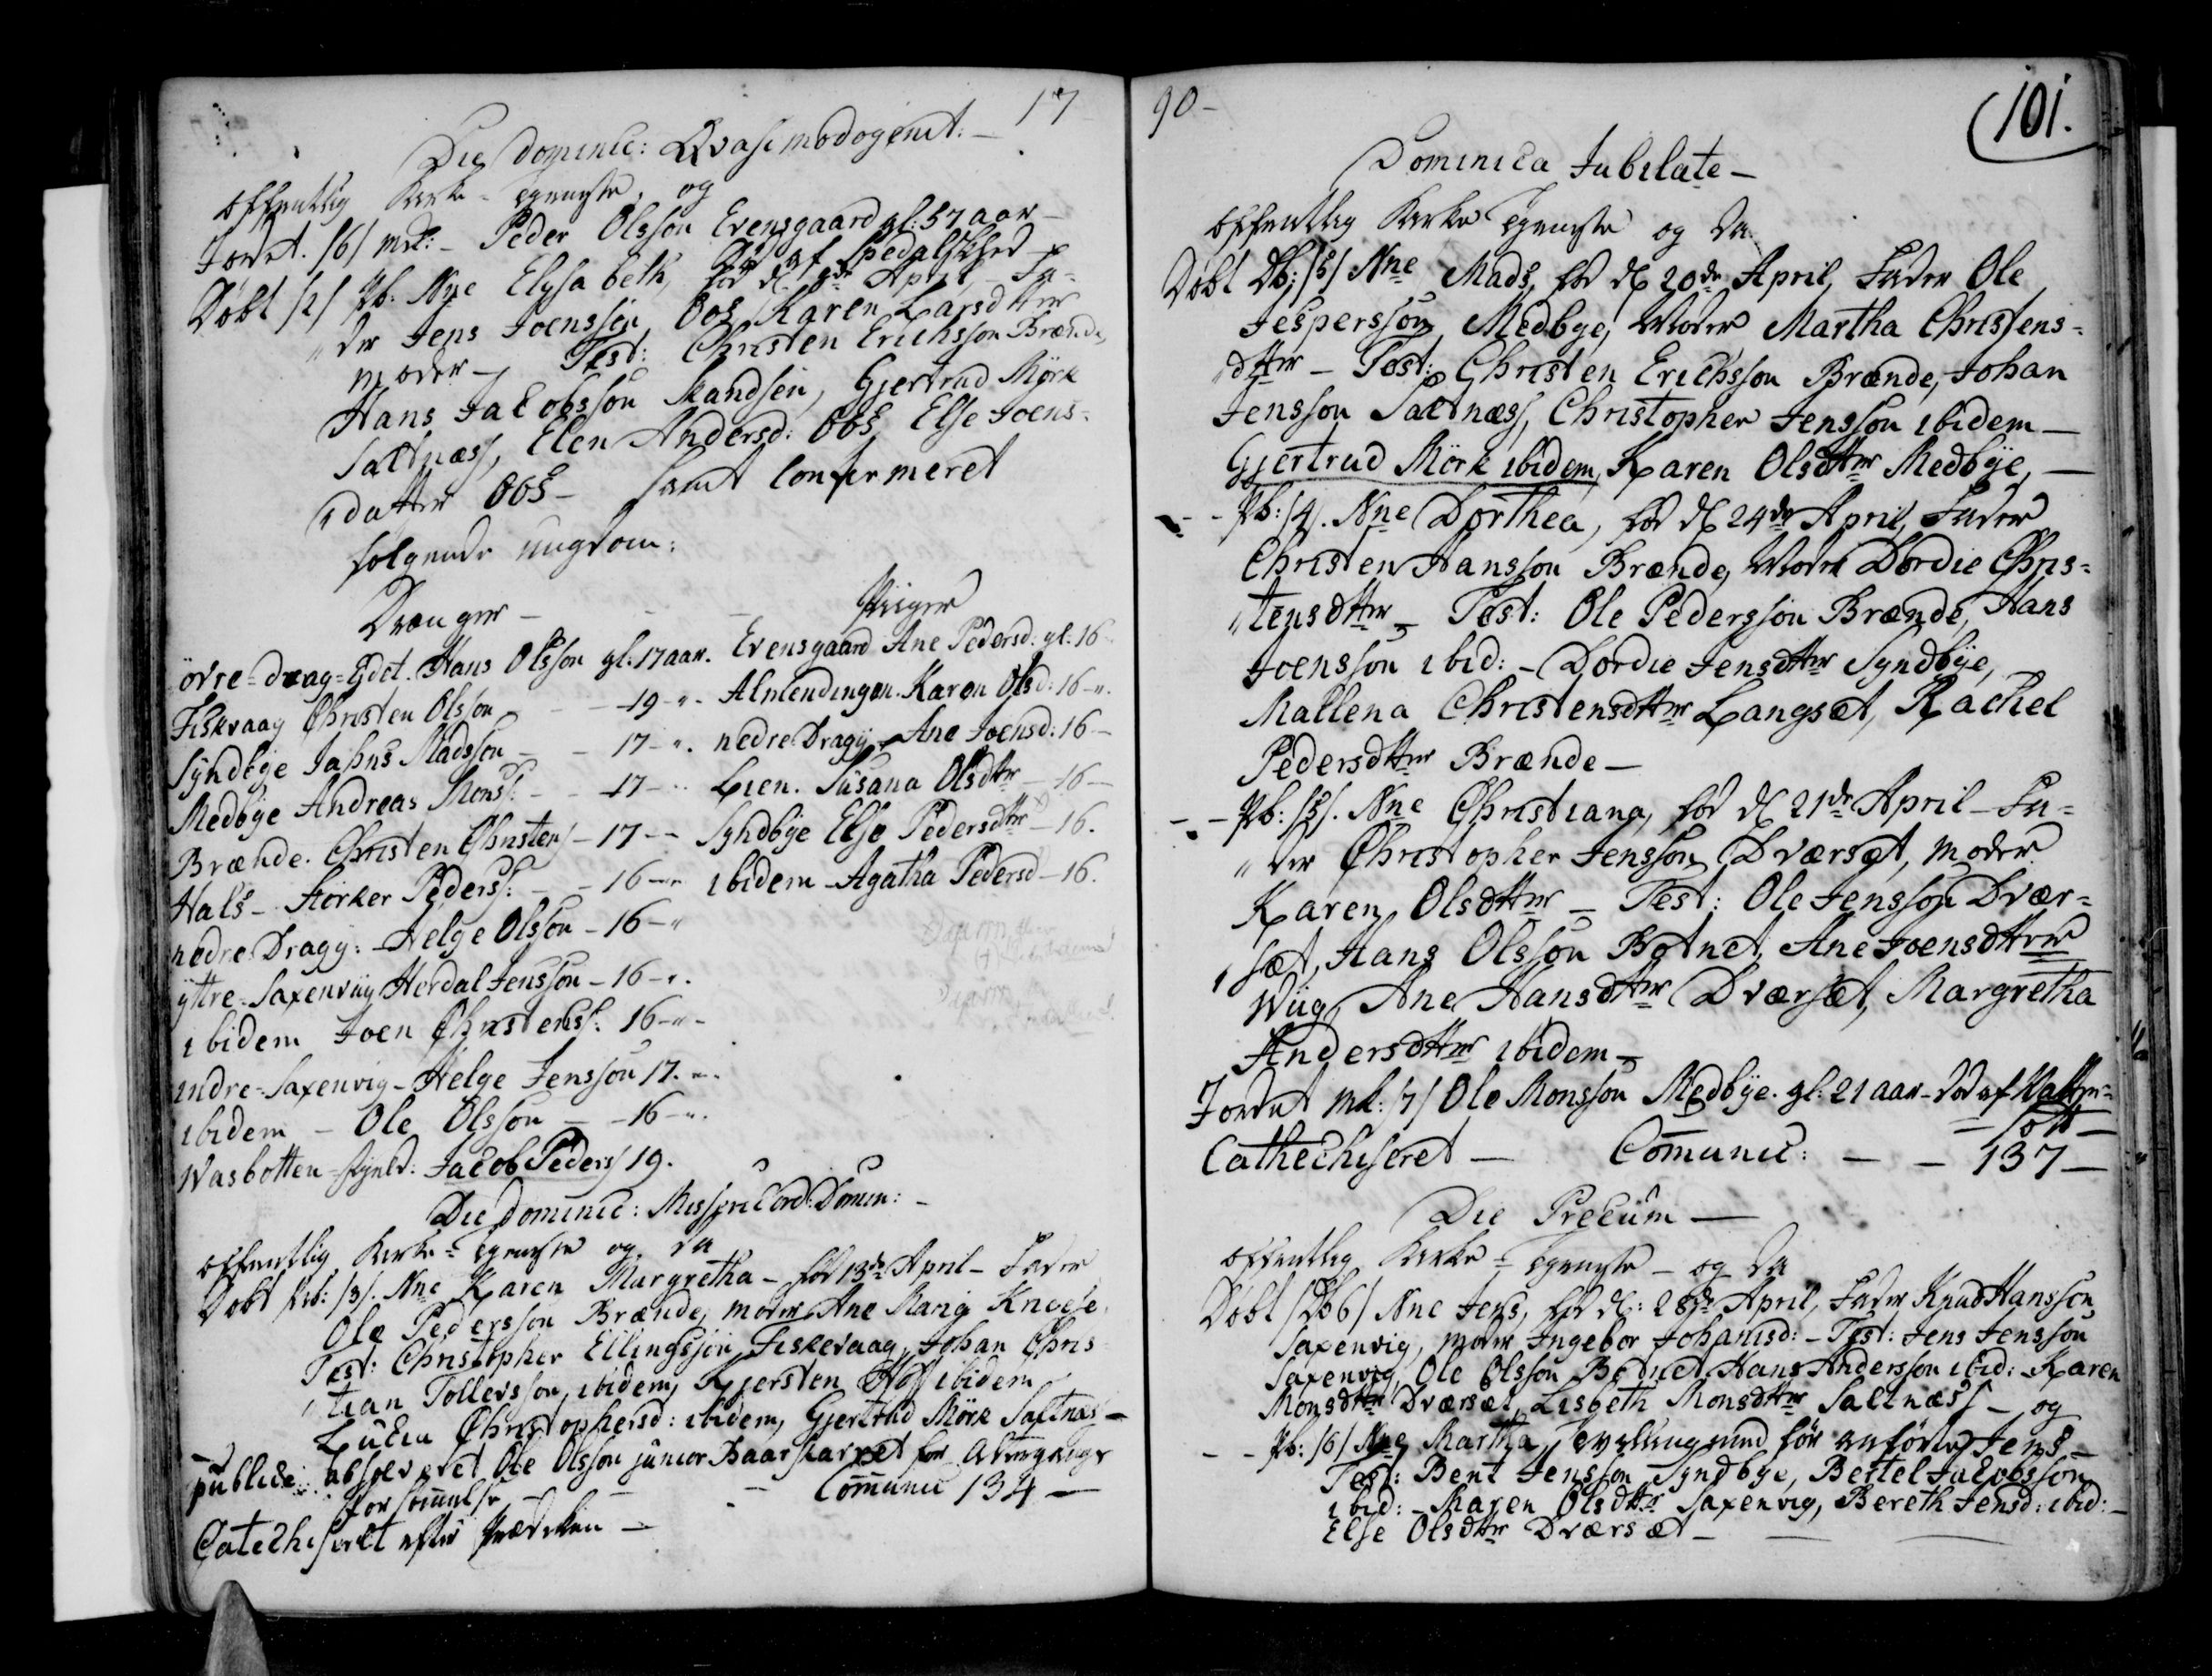 17
Die Dominic: Qvasimodogenit: –
Offentlig Kirke-Tieneste, og
Jordet. /6/ mk: – Peder Olsson Evensgaard gl: 57 aar –
død af Spedalskhed –
Døbt /2/ Pb. Nne Elysabeth, fød d. April – Fa-
der Jens Joensson, Oos, Karen Larsdtter
moder – Test: Christen Erichsson Brænde,
Hans Jacobsson Sandsen, Gjertrud Mörk
Saltnæss, Elen Andersd: Oos, Else Joens-
datter Oos – samt Confirmeret
følgende ungdom:
Drenger – Piiger
övre-drag-Ejdet. Hans Olsson gl: 17 aar. Evensgaard Ane Pedersd: gl: 16
Fiskvaag Christen Olsson – – 19 –". Almendingen. Karen Olsd: 16 –".
Syndbye Jahns Madsson – – 17 –". nedre Dragy – Ane Joensd: 16 –
Medbye Andreas Monss: – – 17 – Lien. Susana Olsdttr – 16 –
Brænde. Christen Christens – 17 – – Syndbye Else Pedersdttr – 16.
Hals – Storker Peders: – – 16 –" ibidem – Agatha Pedersd – 16.
nedre Dragy: – Helge Olsson – 16 –"
ÿttre-Saxenviig Herdal Jensson – 16 –".
ibidem Joen Christens: 16 –"–
indre-Saxenvig – Helge Jensson 17. –".
ibidem – Ole Olsson – – 16 –".
Wasbotten-fjeld: Jacob Peders 19.
Die Dominic: Misericord: Domin: –
Offentlig Kirke-Tieneste og da
Døbt Pb: /3/. Nne Karen Margretha – fød 13de April – Fader
Ole Pedersson Brænde, moder Ane Marig
Test: Christopher Ellingsson Fiskevaag, Johan Chris-
tian Tollevsson, ibidem, Kjersten Hoff ibidem
Lucia Christophersd: ibidem, Gjertrud Mörk Saltnæs –
publice absolveret Ole Olsson junior for
forsømmelse – – Communic 134 –
Catechiseret efter Prædiken –
90 –
101.
Dominica Jubilate –
Offentlig Kirke Tieneste og da
Døbt Db: /5/ Nne Mads, fød d. 20de April, Fader Ole
Jespersson Medbye, Moder Martha Christens-
dttr – Test: Christen Erichsson Brænde, Johan
Jensson Saltnæss, Christopher Jensson ibidem –
Gjertrud Mörk ibidem, Karen Olsdttr Medbye, –
– Pb: /4/. Nne Dorthea, fød d. 24de April, Fader
Christen Hansson Brænde, Moder Dordie Chris-
tensdttr – Test: Ole Pedersson Brænde, Hans
Joensson ibid: – Dordie Jensdttr Syndbye,
Mallena Christensdttr Langsæt, Rachel
Pedersdttr Brænde –
– Pb: /5/. Nne Christiana, fød d. 21de April – Fa-
der Christopher Jensson Dværsæt, moder
Karen Olsdttr – Test: Ole Jensson Dvær-
sæt, Hans Olsson Botnet, Ane Joensdttr
Wiig, Ane Hansdttr Dværsæt, Margretha
Andersdttr ibidem –
Jordet mk: /7/ Ole Monsson Medbye. gl: 21 aar – død af Vatter-
sott –
Cathechiseret – Communic: – – 137 –
Die Precum –
Offentlig Kirke-Tieneste – og da
Døbt /Db 6/ Nne Jens, fød d: 28de April, Fader Knud Hansson
Saxenvig, moder Ingebor Johanisd: – Test: Jens Jensson
Saxenvig, Ole Olsson Botnet, Hans Andersson ibid: Karen
Monsdttr Dværsæt, Lisbeth Monsdttr Saltnæss – og
– – Pb: /6/ Nne Martha, Tvilling med før anførte Jens –
Test: Bent Jensson Syndbye, Bertel Jacobsson
ibid: – Maren Olsdttr Saxenvig, Bereth Jensd: ibid: –
Else Olsdttr Dværsæt –